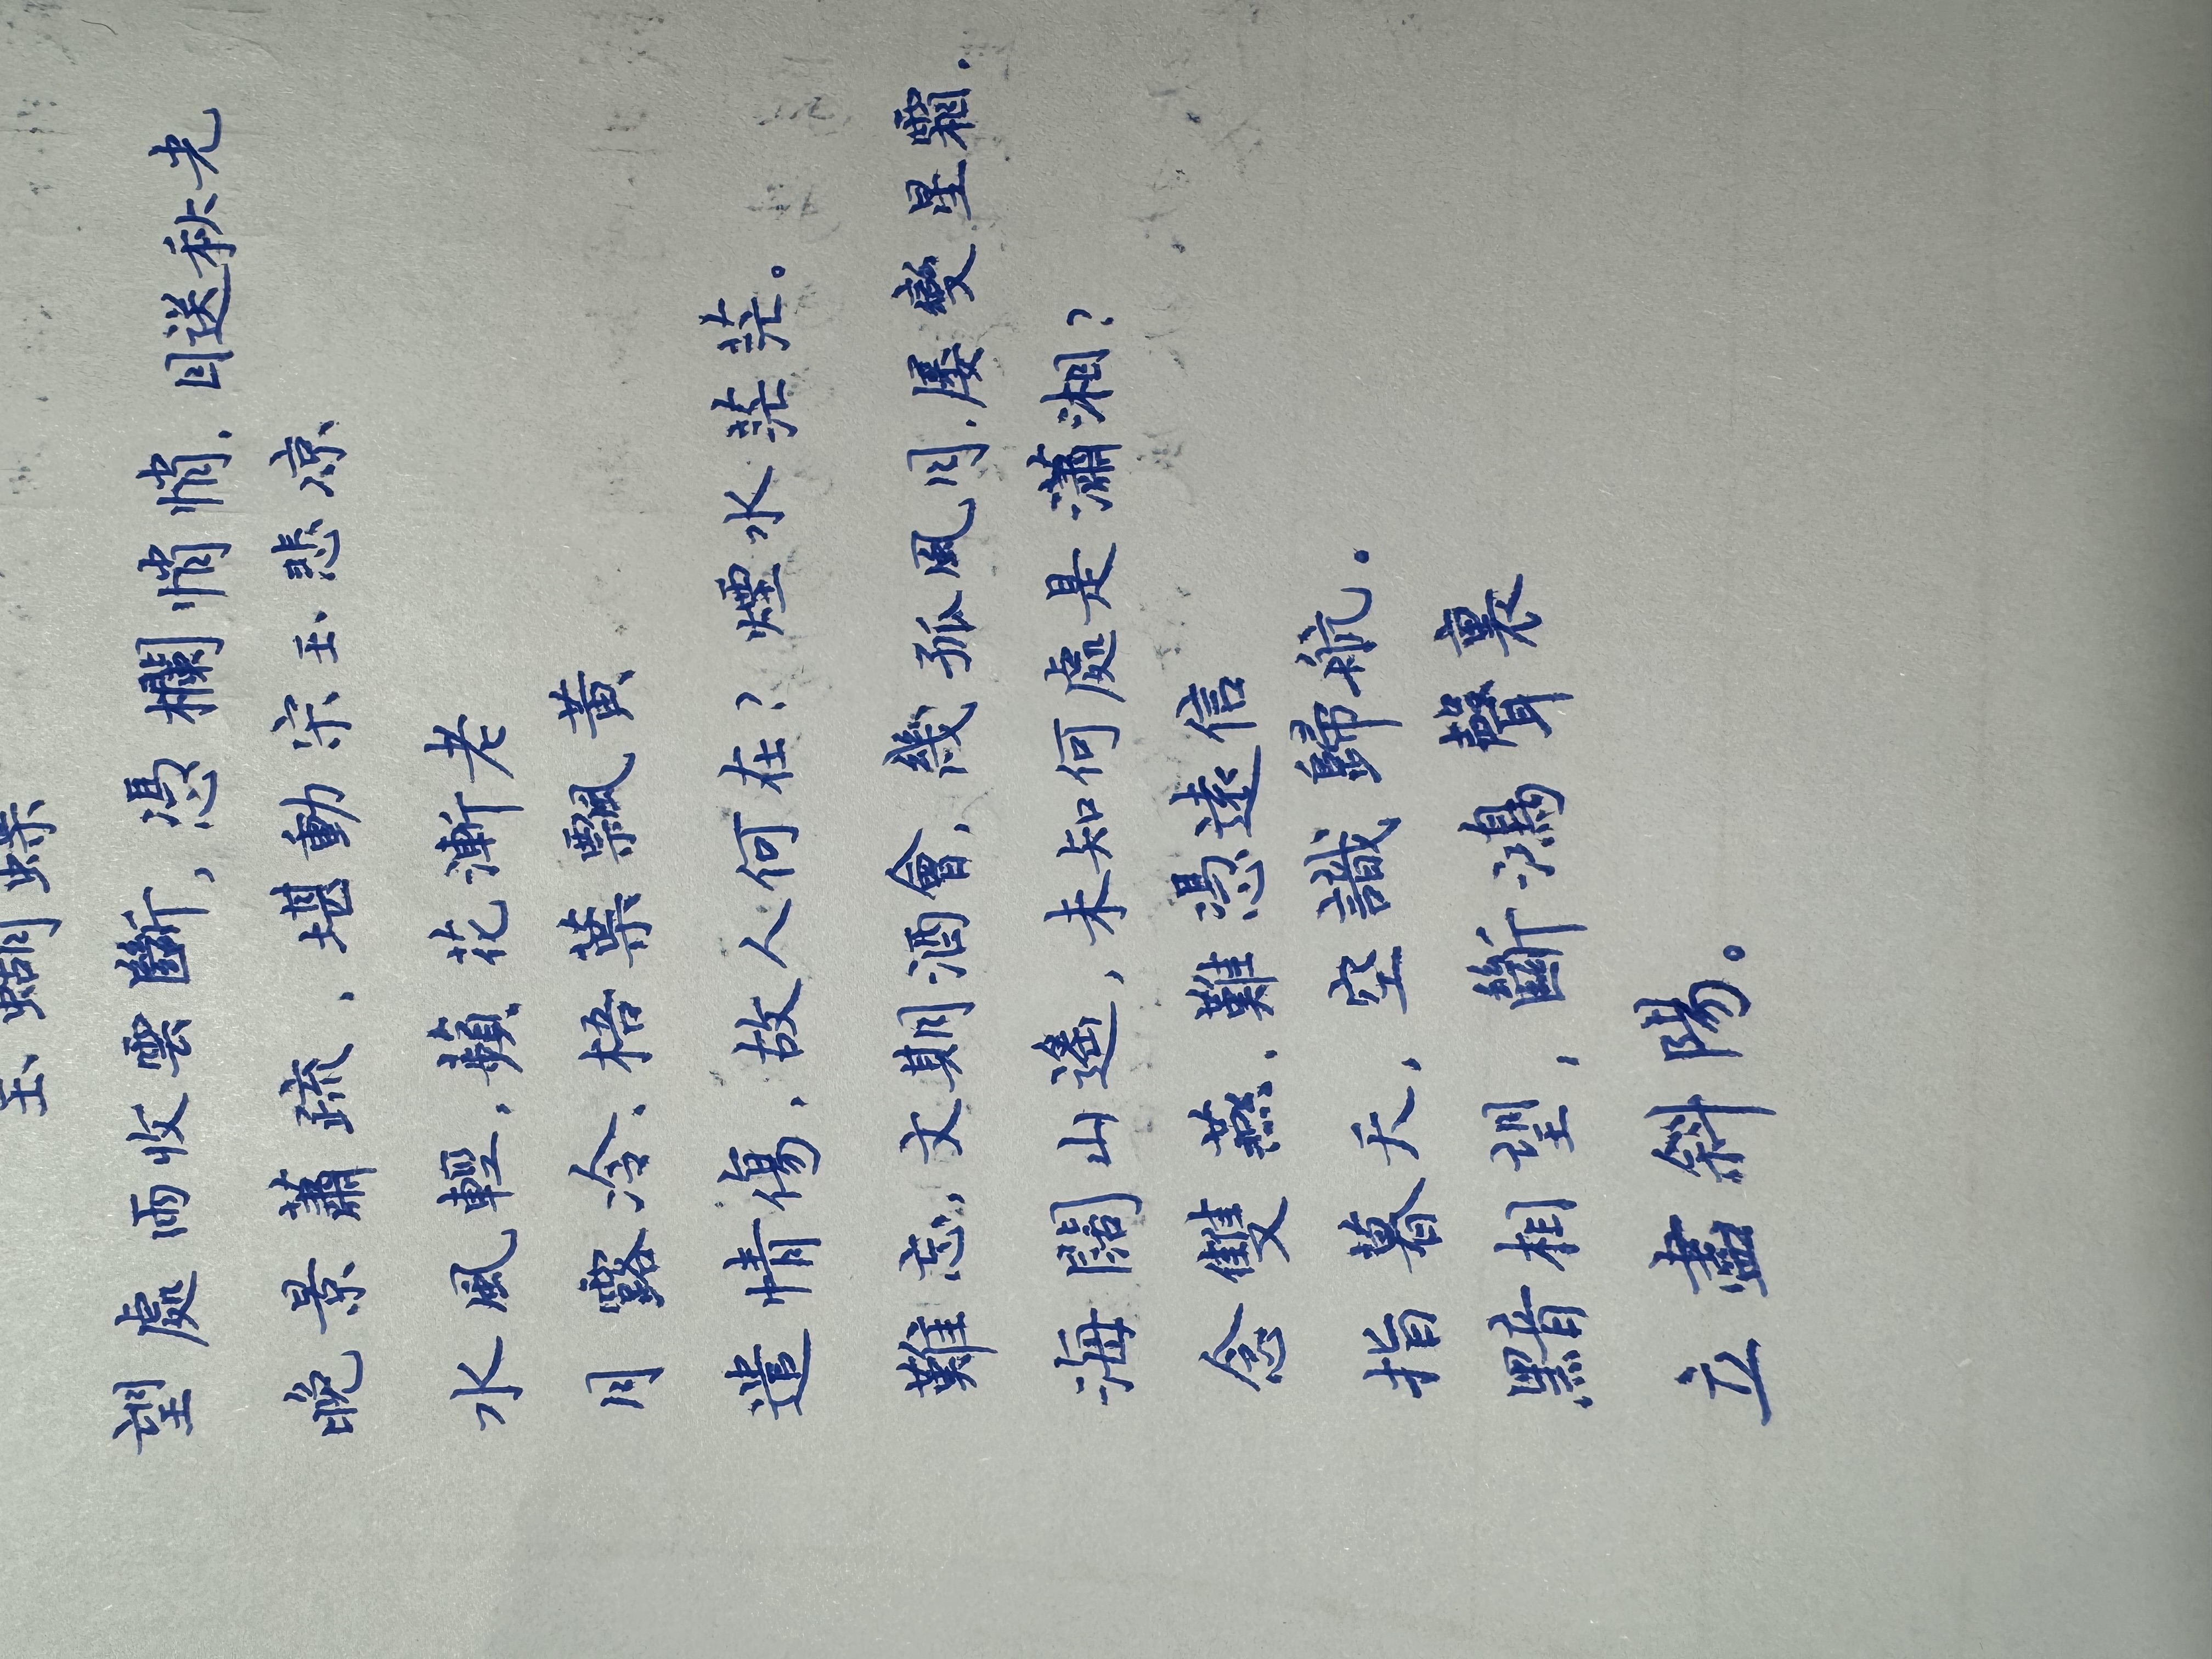 玉蝴蝶
望處雨收雲斷,憑欄悄悄.目送秋光
晚景蕭疏,堪動宋玉悲凉
水風輕,蘋花漸老
月露冷、梧葉飄黃
遣情傷,故人何在?煙水茫茫。
難忘,文期酒會,幾孤風月,屢變星霜.
海闊山遙,未知何處是瀟湘?
念雙燕,難憑遠信
指暮天,空識歸航.
黯相望,斷鴻聲裏
立盡斜陽。